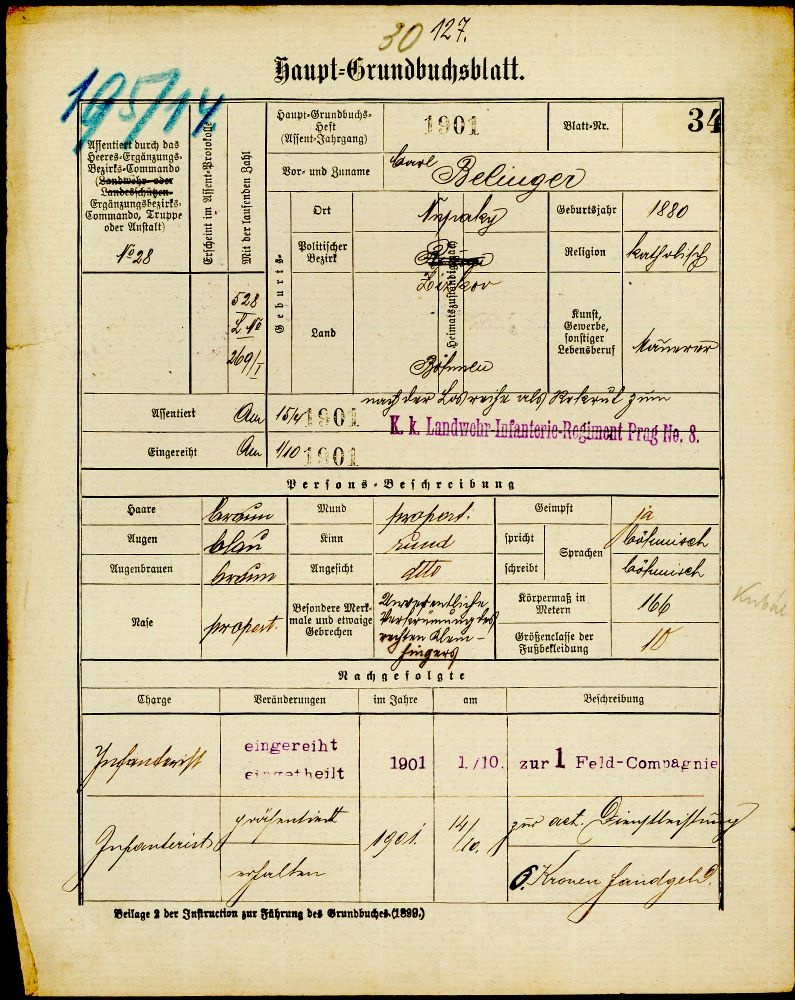 30 127.
Haupt-Grundbuchsblatt.
195/14
Assentiert durch das
Heeres-Ergänzungs-
Bezirks-Commando
(Landwehr- oder
Landesschützen-
Ergänzungsbezirks-
Commando, Truppe
oder Anstalt)
No 28
Erscheint im Assent-Protokolle
Mit der laufenden Zahl
528
269/I
Haupt-Grundbuchs-
Heft
(Assent-Jahrgang)
1901
Blatt-Nr.
34
Vor- und Zuname
Carl Belinger
Geburts-
Ort
Geburtsjahr
1880
Politischer
Bezirk
Žižkov
Heimatszuständigkeit
Religion
katholisch
Land
Böhmen
Kunst,
Gewerbe,
sonstiger
Lebensberuf
Maurer
nach der Losreihe als Rekrut zum
Assentiert
Am 15/4 1901
K. k. Landwehr-Infanterie-Regiment Prag No. 8.
Eingereiht
Am 1/10 1901
Persons-Beschreibung
Haare braun
Mund proport.
Geimpft ja
Augen blau
Kinn rund
spricht
Sprachen
böhmisch
Augenbrauen braun
Angesicht dtto
schreibt
böhmisch
Nase proport.
Besondere Merk-
male und etwaige
Gebrechen
Unwesentliche
Verkrümmung des
rechten Klein-
fingers
Körpermaß in
Metern
166
Größenclasse der
Fußbekleidung
10
Nachgefolgte
Charge
Veränderungen
im Jahre
am
Beschreibung
Infanterist
eingereiht
eingetheilt
1901
1./10.
zur 1 Feld-Compagnie
Infanterist
präsentiert
1901.
14/10.
zur act. Dienstleistung
erhalten
6 Kronen Handgeld.
Beilage 2 der Instruction zur Führung des Grundbuches (1899.)